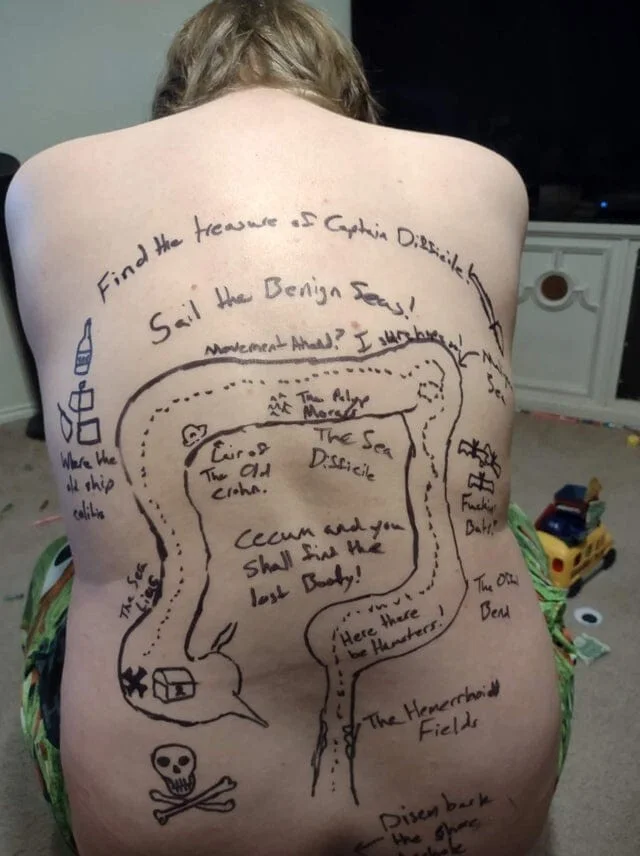 Find the treasure of Captain Difficile!
Sail the Benign Seas!
Movement Ahead? I
The Polyp
Morass
Lair of
The Old
Crohn.
The Sea
Difficile
Where the
old ship
colitis
Fuckin'
Bats?
Cecum and you
shall find the
lost Booty!
The Sea
The
Bend
Here there
be Hamsters!
The Hemerrhoidd
Fields
Disembark
the